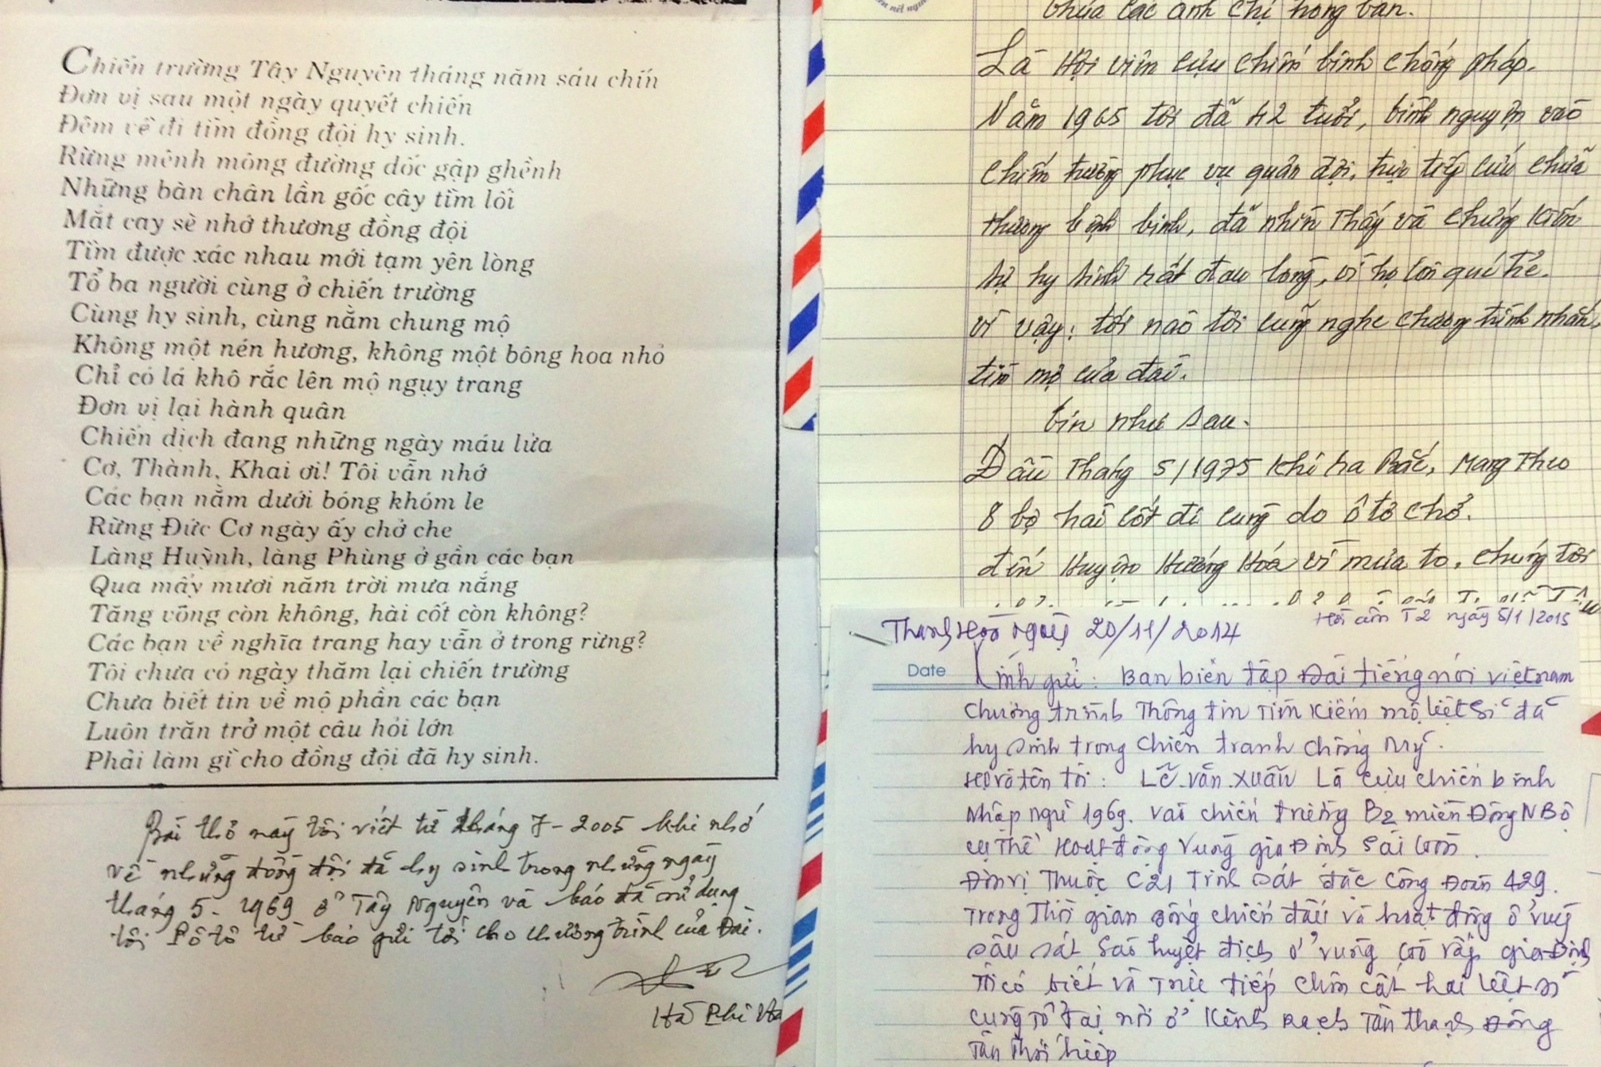 Chiến trường Tây Nguyên tháng năm sáu chín
Đơn vị sau một ngày quyết chiến
Đêm về đi tìm đồng đội hy sinh.
Rừng mênh mông đường dốc gập ghềnh
Những bàn chân lần gốc cây tìm lối
Mắt cay sè nhớ thương đồng đội
Tìm được xác nhau mới tạm yên lòng
Tổ ba người cùng ở chiến trường
Cùng hy sinh, cùng nằm chung mộ
Không một nén hương, không một bông hoa nhỏ
Chỉ có lá khô rắc lên mộ ngụy trang
Đơn vị lại hành quân
Chiến dịch đang những ngày máu lửa
Cơ, Thành, Khai ơi! Tôi vẫn nhớ
Các bạn nằm dưới bóng khóm le
Rừng Đức Cơ ngày ấy chở che
Làng Huỳnh, làng Phùng ở gần các bạn
Qua mấy mươi năm trời mưa nắng
Tăng võng còn không, hài cốt còn không?
Các bạn về nghĩa trang hay vẫn ở trong rừng?
Tôi chưa có ngày thăm lại chiến trường
Chưa biết tin về mộ phần các bạn
Luôn trăn trở một câu hỏi lớn
Phải làm gì cho đồng đội đã hy sinh.
Bài thơ này tôi viết từ tháng 7-2005 khi nhớ
về những đồng đội đã hy sinh trong những ngày
tháng 5-1969 ở Tây Nguyên và báo đã sử dụng
tôi Pô tô từ báo gửi tới cho chương trình của Đài.
Hà Phi
thưa các anh chị hồng vân.
Là Hội viên cựu chiến binh chống pháp.
Năm 1965 tôi đã 42 tuổi, tình nguyện vào
chiến trường phục vụ quân đội, trực tiếp cứu chữa
thương bệnh binh, đã nhìn thấy và chứng kiến
sự hy sinh rất đau lòng, vì họ còn quá trẻ.
vì vậy: tối nào tôi cũng nghe chương trình nhắn
tìm mộ của đài.
tin như sau.
Đầu tháng 5/1975 khi ra Bắc, mang theo
8 bộ hài cốt đi cùng do ô tô chở.
đến Huyện Hướng Hoá vì mưa to, chúng tôi
Thanh Hoá ngày 20/11/2014
T2 ngày 5/1/2015
Date
Kính gửi: Ban biên tập Đài tiếng nói việt nam
chương trình Thông tin Tìm Kiếm mộ liệt sĩ đã
hy sinh trong chiến tranh chống Mỹ.
Họ và tên tôi: Lê văn Xuân Là cựu chiến binh
Nhập ngũ 1969. vào chiến trường B2 miền Đông NBộ
cụ thể hoạt động vùng gia Định Sài Gòn.
Đơn vị Thuộc C21 Trinh sát đặc công Đoàn 429.
Trong Thời gian sống chiến đấu và hoạt động ở vùng
sâu sát sào huyệt địch ở vùng gò vấp gia Định
Tôi có biết và Trực tiếp chôn cất hai liệt sĩ
cùng tổ tại nơi ở Kênh Rạch Tân thạnh Đông
Tân Thới hiệp